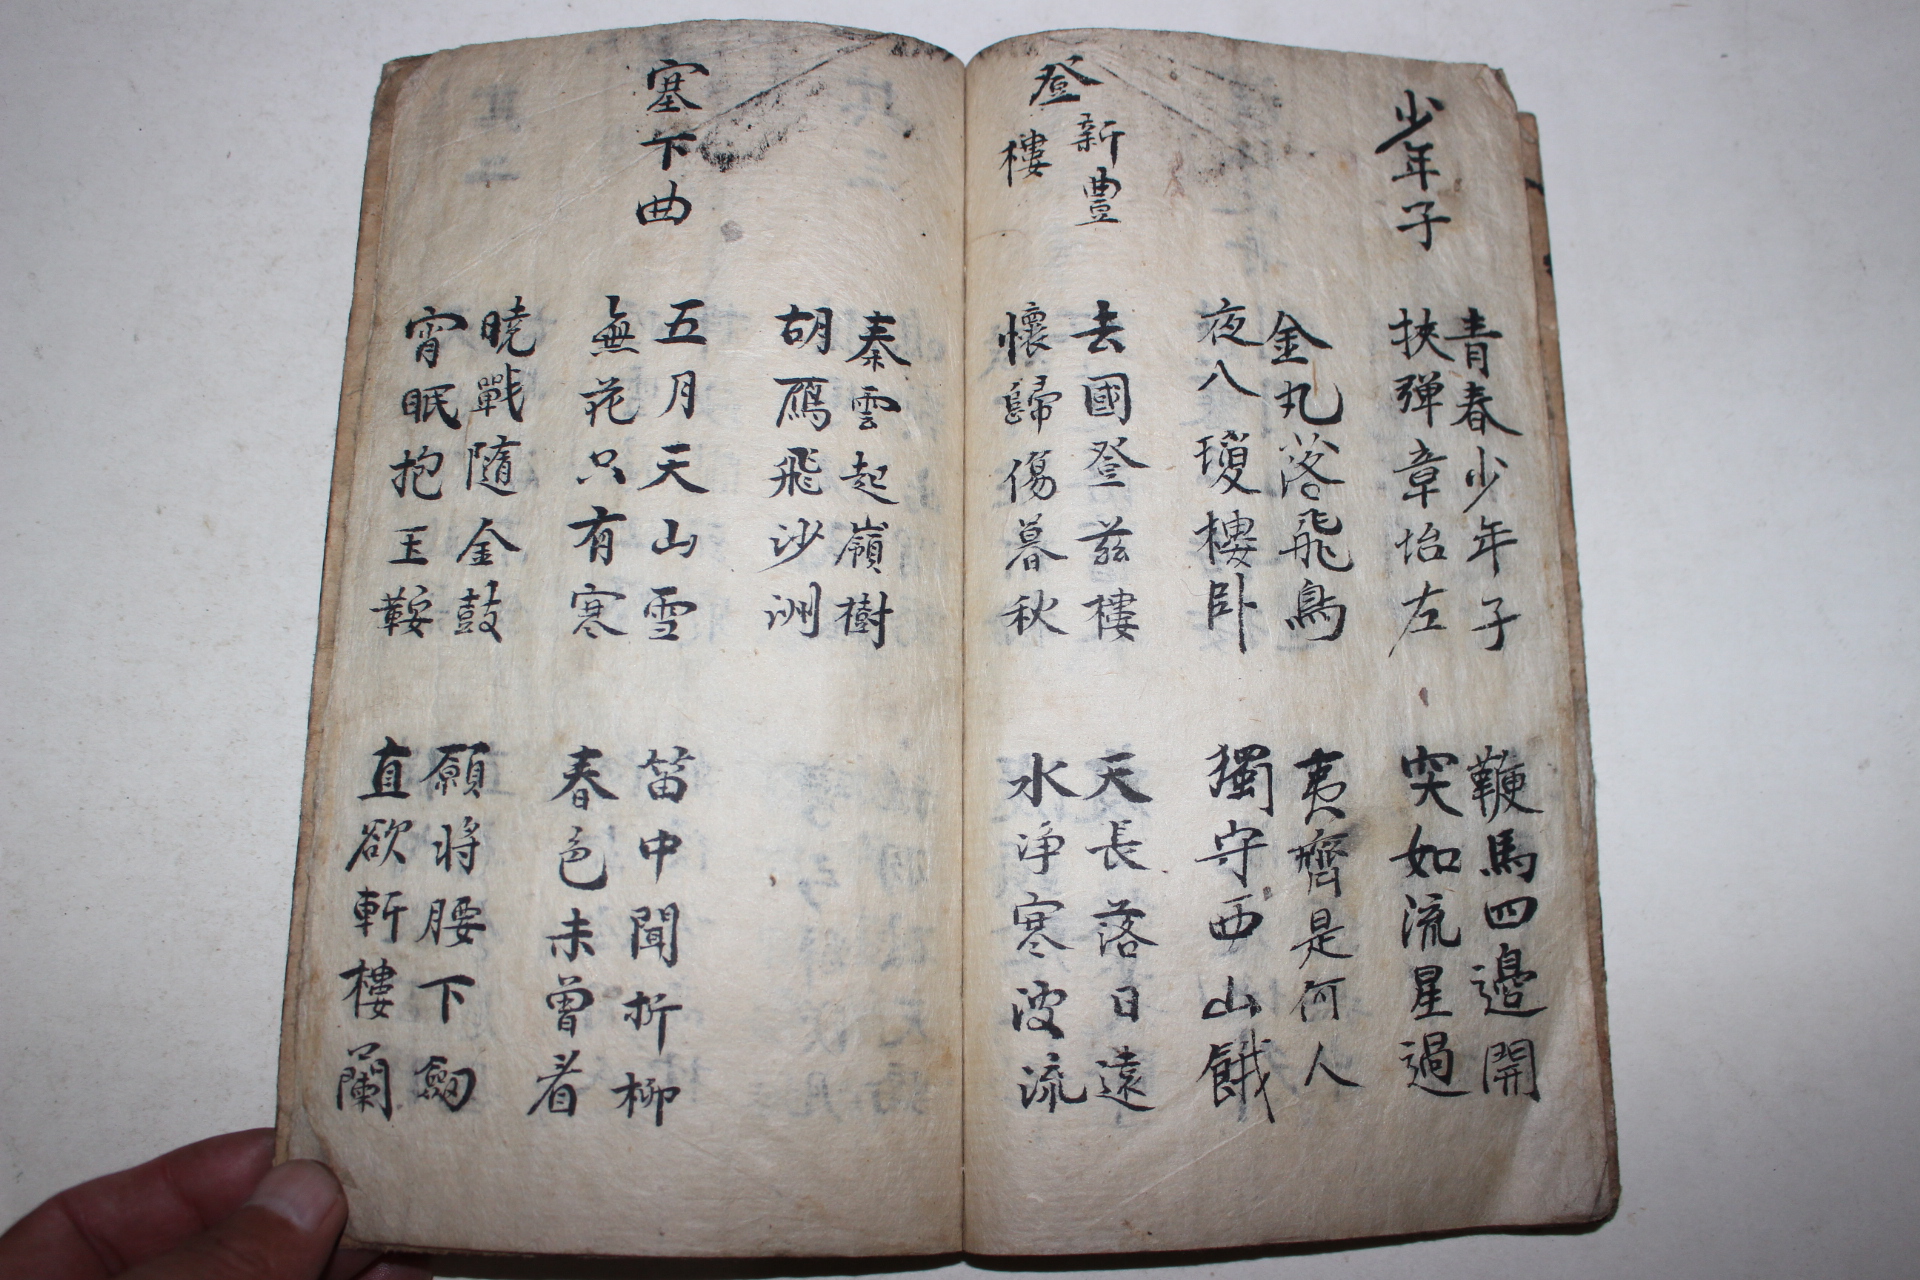 少年子
青春少年子
挾弹章坮左
鞭馬四邊開
突如流星過
金丸落飛鳥
夜八瓊樓卧
夷齊是何人
獨守西山餓
登新豊樓
去國登茲樓
懷歸傷暮秋
天長落日遠
水淨寒波流
秦雲起嶺樹
胡鴈飛沙洲
塞下曲
五月天山雪
無花只有寒
笛中聞折柳
春色未曾看
曉戰隨金鼓
宵眠抱玉鞍
願將腰下劒
直欲斬樓蘭